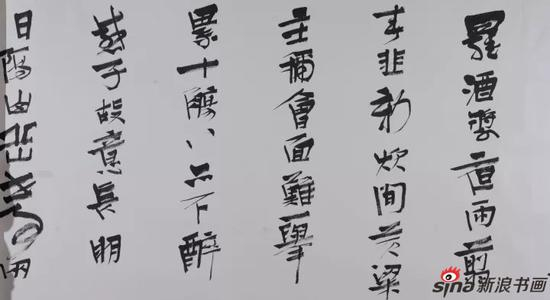 羅酒漿夜雨剪
春韭新炊間黃粱
主稱會面難一舉
累十觴〻亦不醉
感子故意長明
日隔山岳世事兩
sina新浪书画